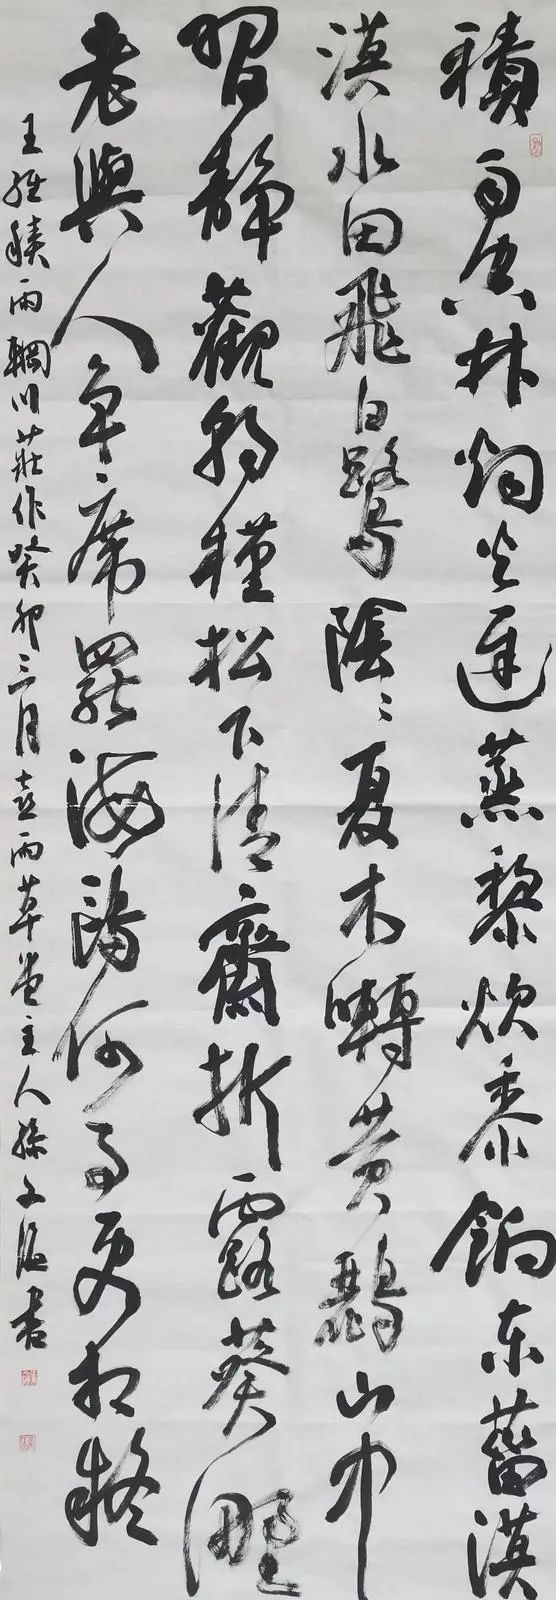 積雨空林烟火遲蒸藜炊黍餉東菑漠
漠水田飛白鷺陰〻夏木囀黄鸝山中
習静觀朝槿松下清齋折露葵野
老與人争席罷海鷗何事更相疑
王維積雨輞川莊作癸卯三月喜雨草堂主人孫文海書